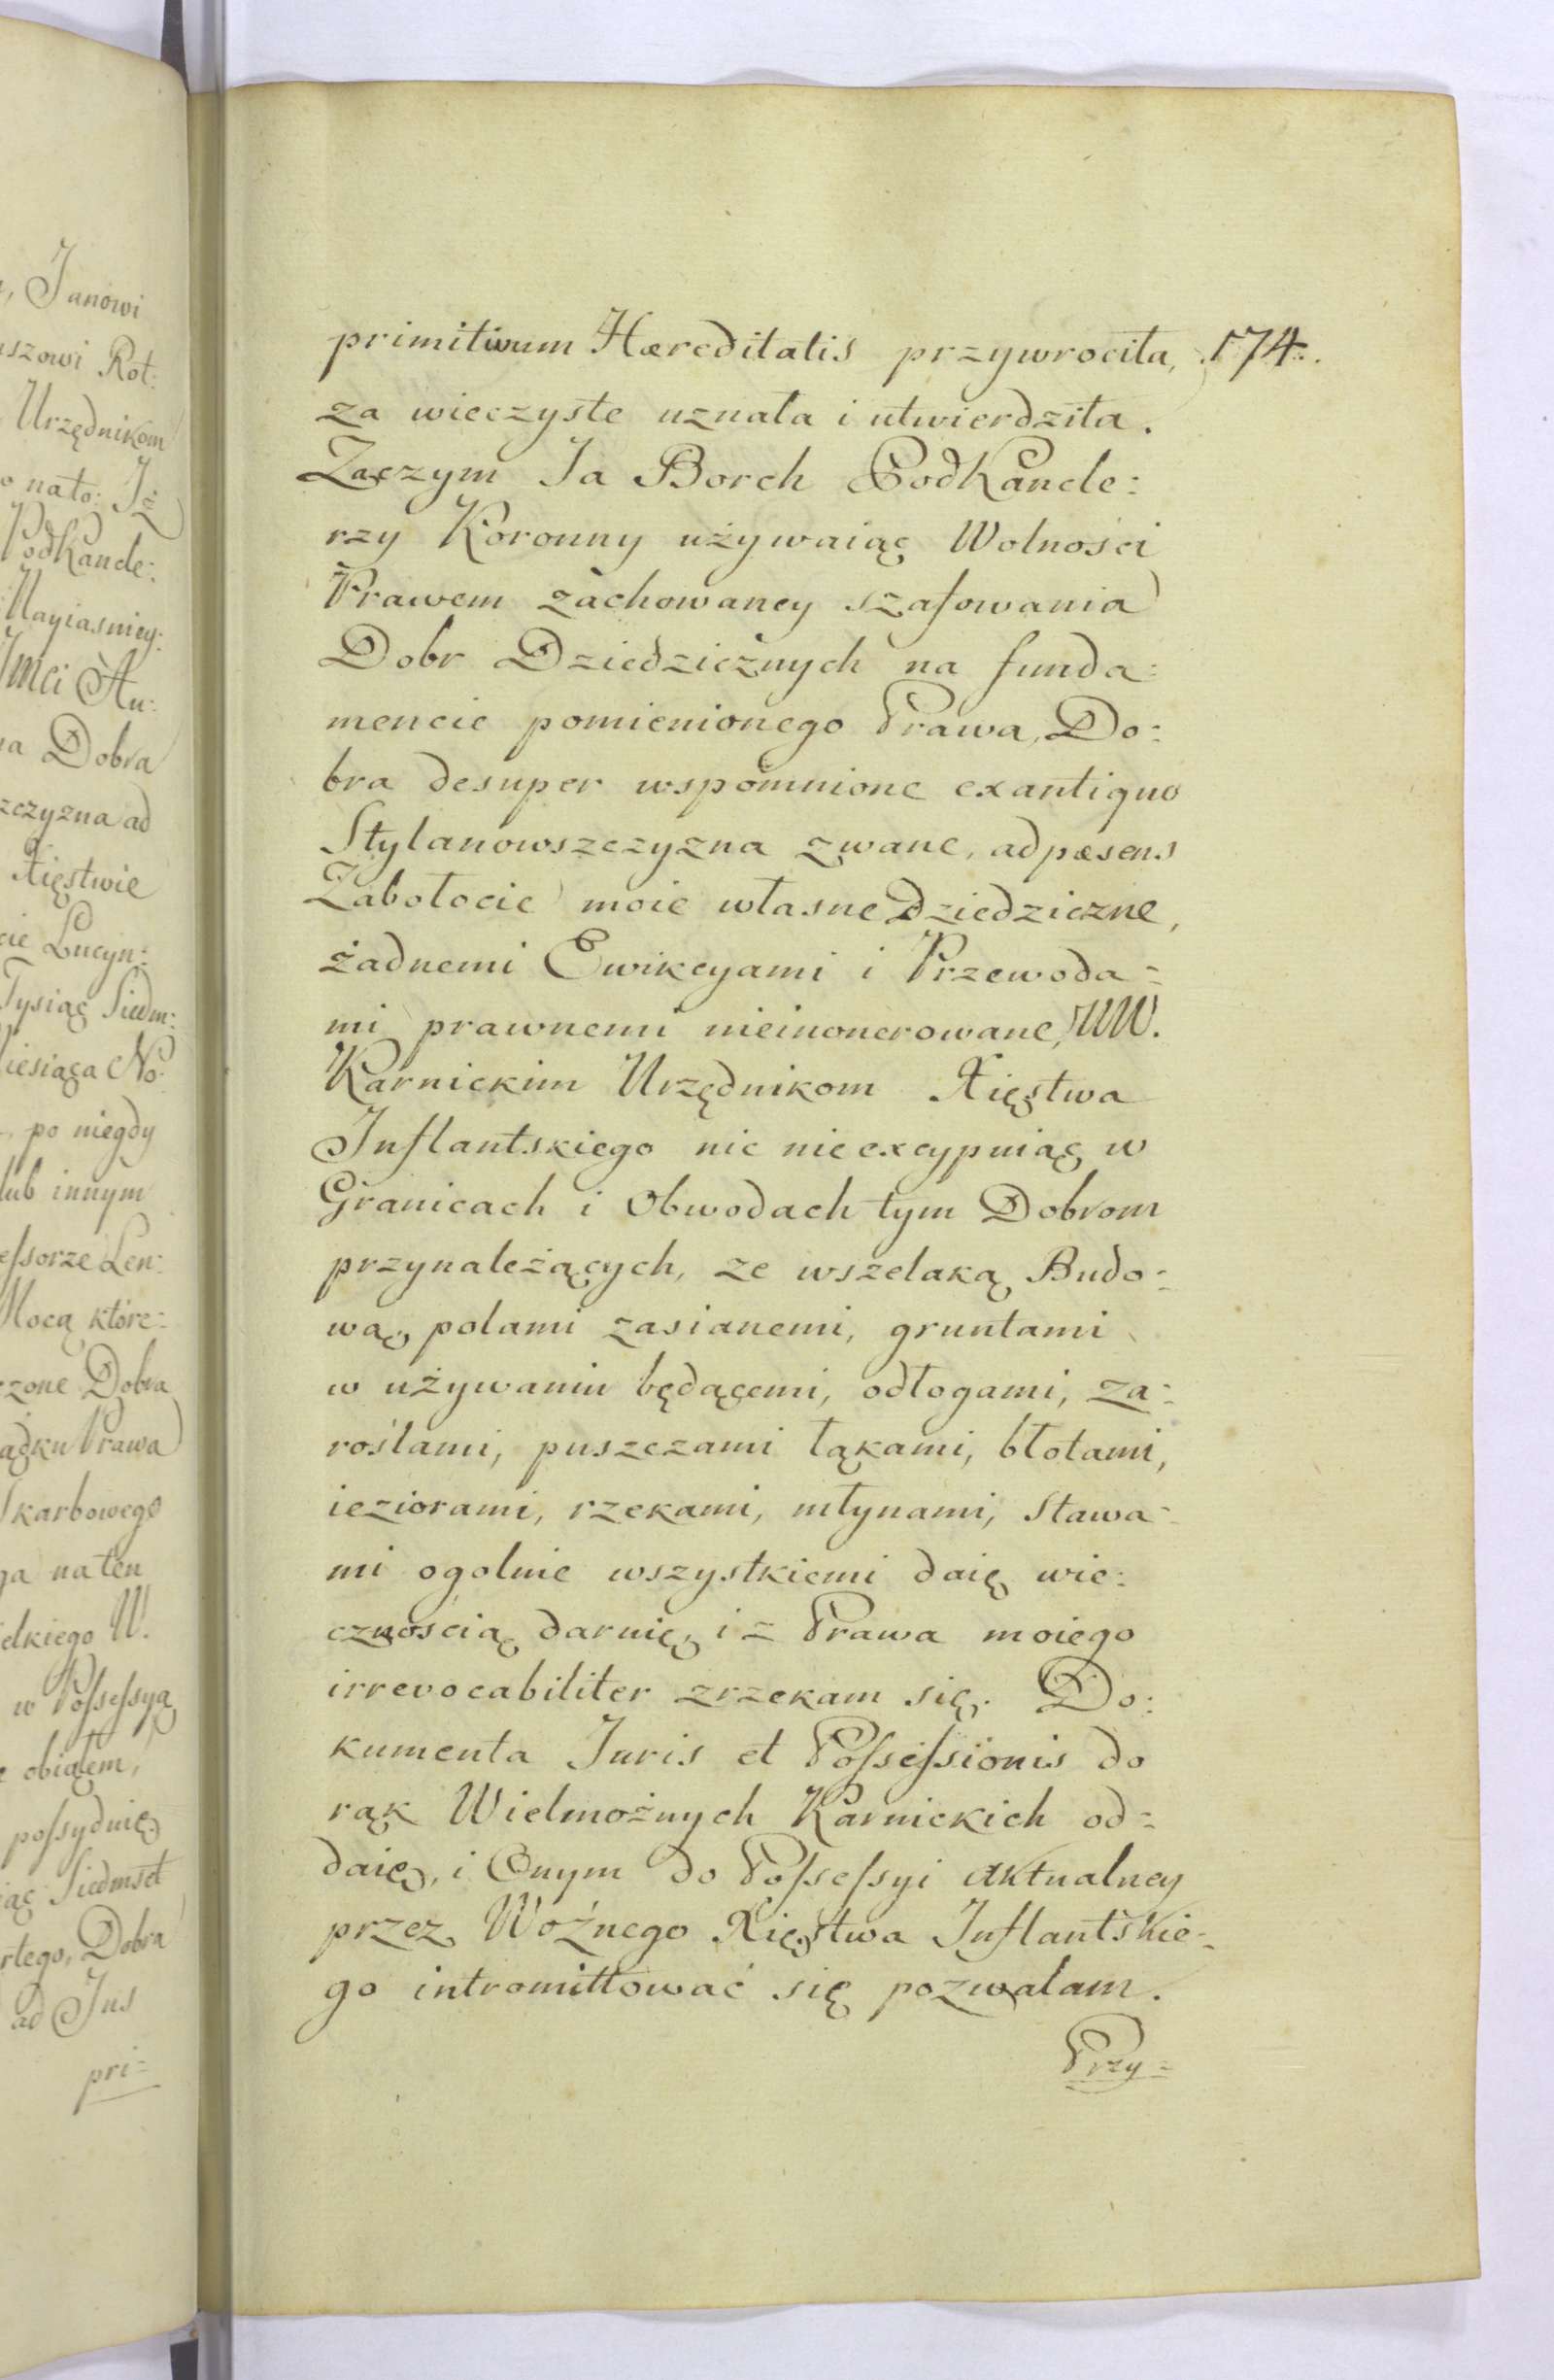 , Janowi
uszowi Rot:
Urzędnikom
o nato: Iż
PodKancle:
Nayiasniey:
Jmci Au:
na Dobra
zczyzna ad
Xięstwie
cie Lucyn:
Tysiąc Siedm:
iesiąca No:
po niegdy
lub innym
eſsorze Len:
Mocą które:
czone Dobra
ądku Prawa
Skarbowego
ga na ten
elkiego W.
w Poſseſsyą
e obiąłem,
poſsyduię
iąc Siedmset
rtego, Dobra
ad Jus
pri=
primitivum Hæreditatis przywrociła, 174.
za wieczyste uznała i utwierdziła.
Zaczym Ja Borch PodKancle:
rzy Koronny używaiąc Wolności
Prawem zachowaney szafowania
Dobr Dziedzicznych na funda:
mencie pomienionego Prawa, Do:
bra desuper wspomnione exantiquo
Stylanowszczyzna zwane, adpæsens
Zabołocie moie własne Dziedziczne,
żadnemi Ewikcyami i Przewoda=
mi prawnemi nieinonerowane, WW.
Karnickim Urzędnikom Xięstwa
Inflantskiego nic nieexcypuiąc w
Granicach i Obwodach tym Dobrom
przynależących, ze wszelaką Budo:
wą, polami zasianemi, gruntami
w używaniu będącemi, odłogami, za:
roślami, puszczami łąkami, błotami,
ieziorami, rzekami, młynami, Stawa=
mi ogolnie wszystkiemi daię wie:
cznoscią daruię, i z Prawa moiego
irrevocabiliter zrzekam się. Do:
kumenta Juris et Poſseſsionis do
rąk Wielmożnych Karnickich od=
daię, i Onym do Poſseſsyi aktualney
przez Woźnego Xięstwa Inflantskie=
go intromittować się pozwalam.
Przy=